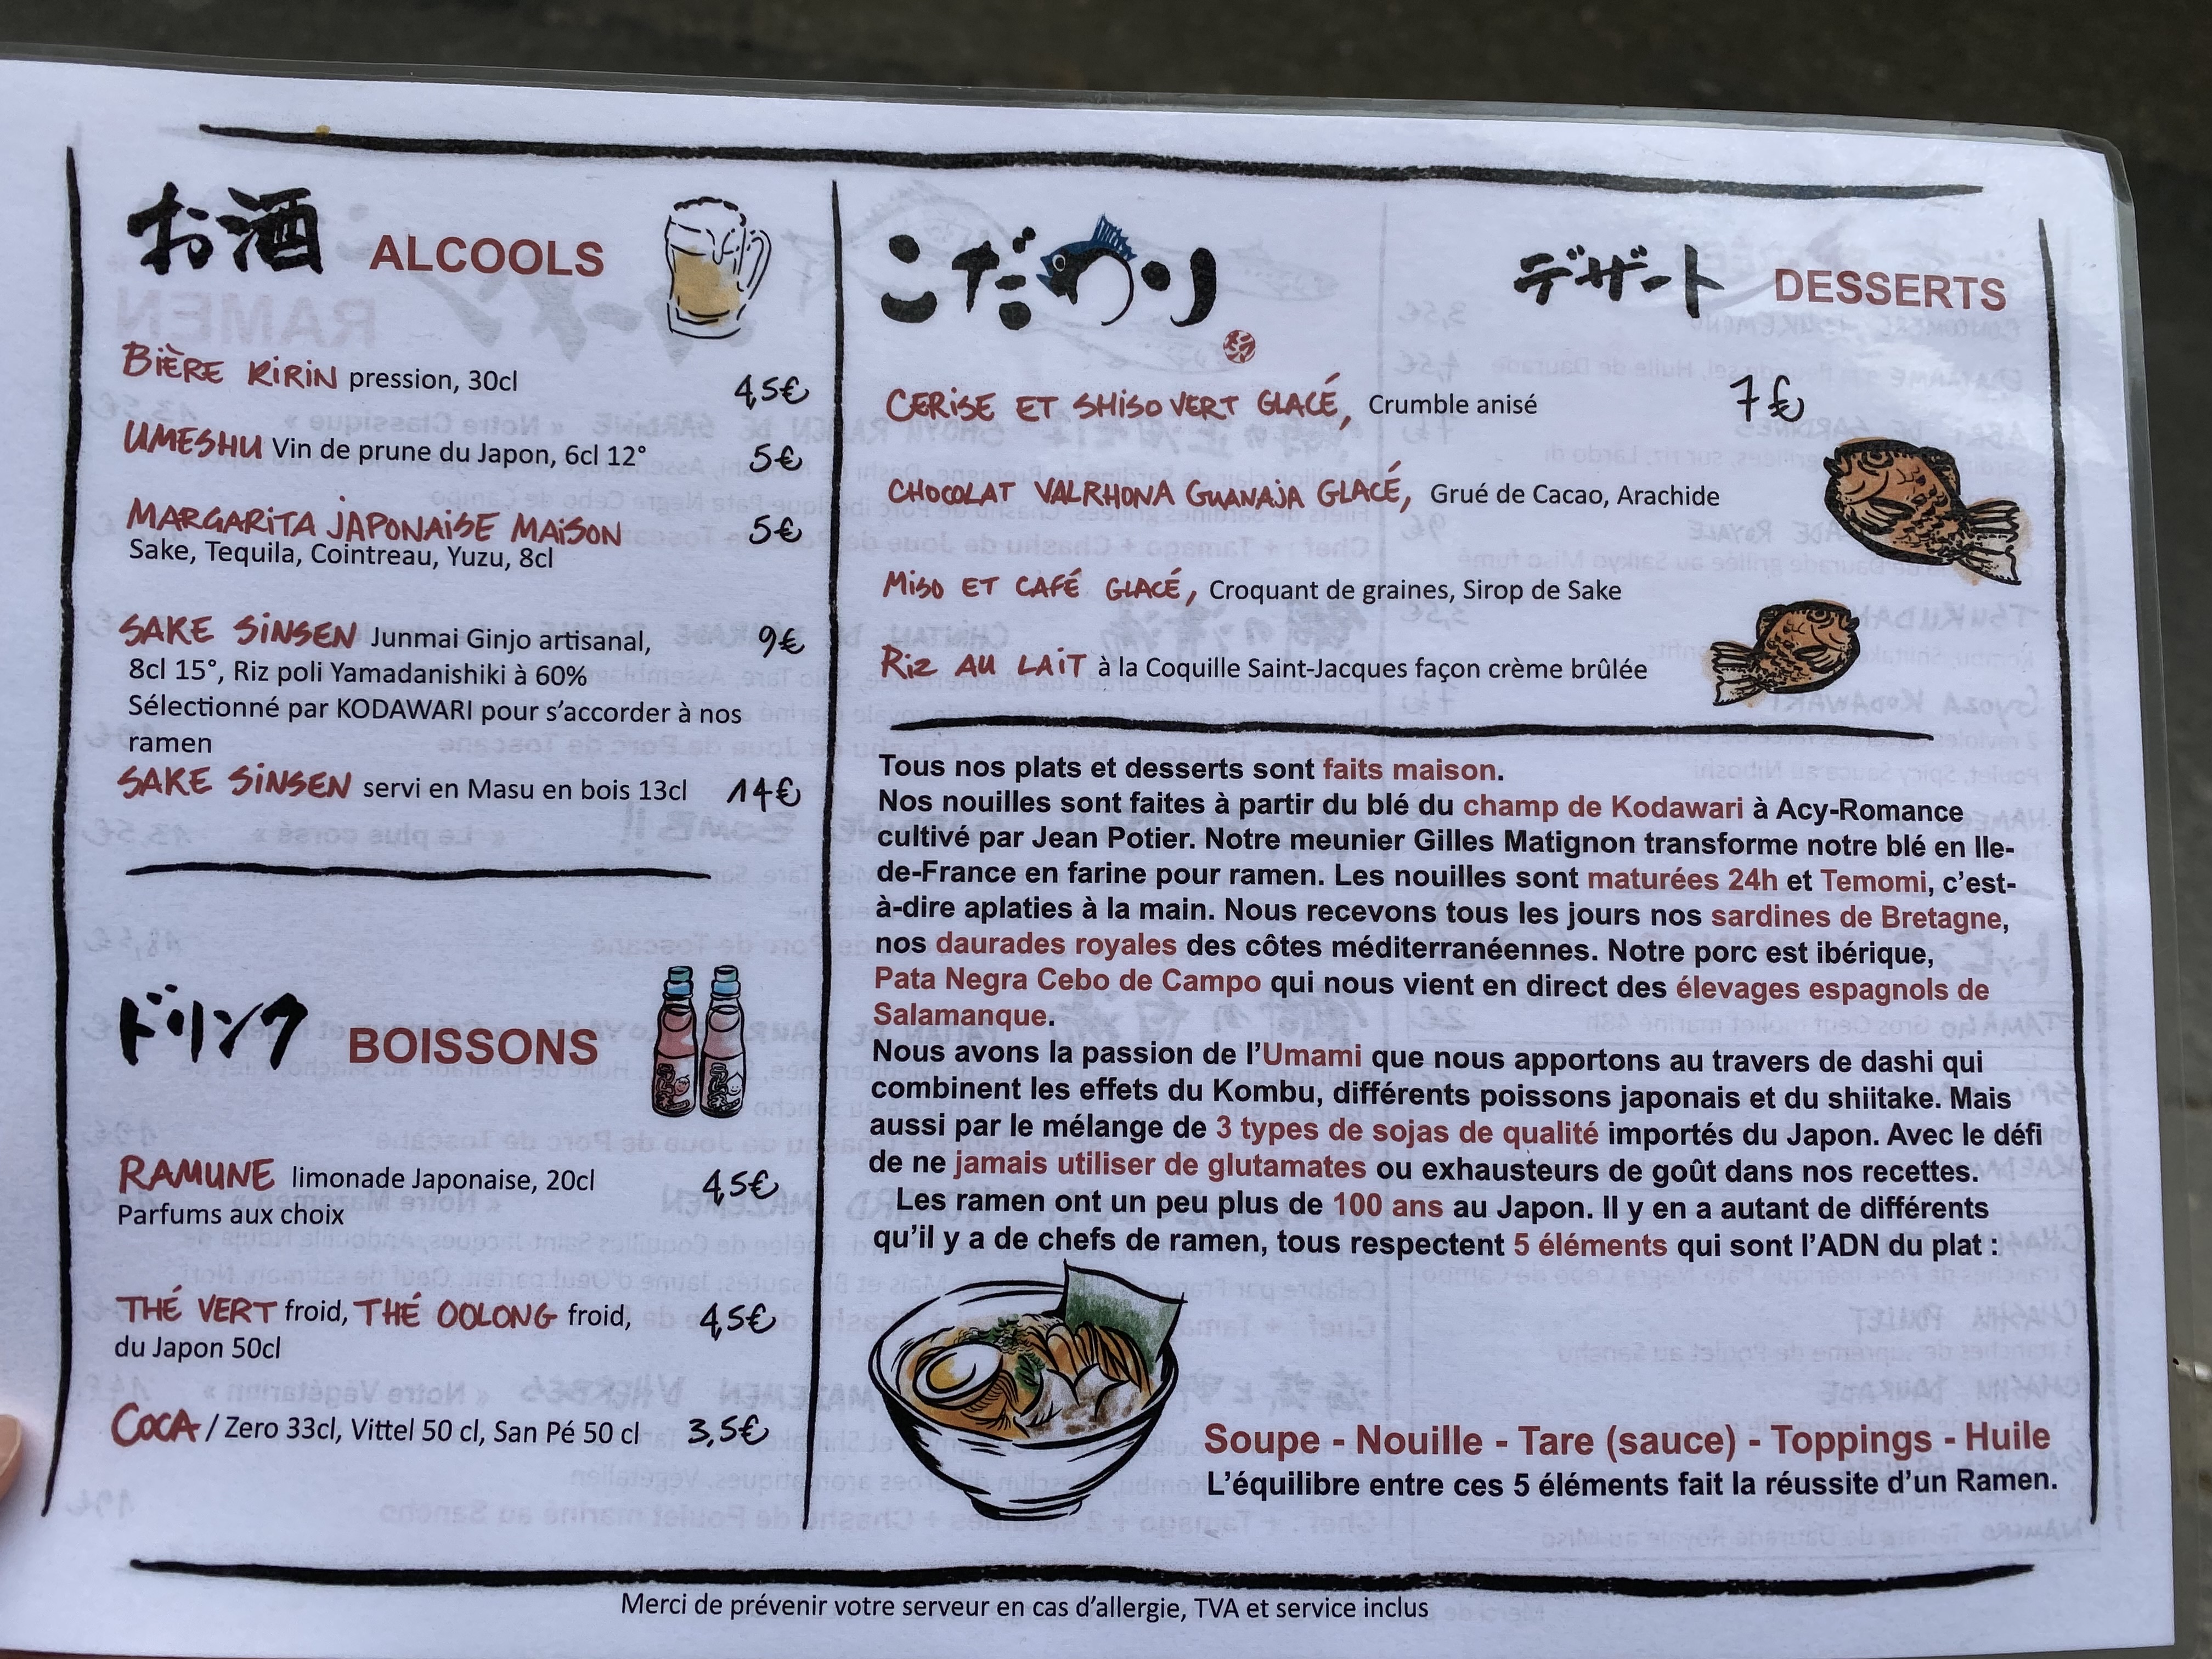 お酒 ALCOOLS
BIÈRE KIRIN pression, 30cl 4,5€
UMESHU Vin de prune du Japon, 6cl 12° 5€
MARGARITA JAPONAISE MAISON 5€
Sake, Tequila, Cointreau, Yuzu, 8cl
SAKE SINSEN Junmai Ginjo artisanal, 9€
8cl 15°, Riz poli Yamadanishiki à 60%
Sélectionné par KODAWARI pour s'accorder à nos
ramen
SAKE SINSEN servi en Masu en bois 13cl 14€
ドリンク BOISSONS
RAMUNE limonade Japonaise, 20cl 4,5€
Parfums aux choix
THÉ VERT froid, THÉ OOLONG froid, 4,5€
du Japon 50cl
COCA / Zero 33cl, Vittel 50 cl, San Pé 50 cl 3,5€
こだわり
デザート DESSERTS
CERISE ET SHISO VERT GLACÉ, Crumble anisé 7€
CHOCOLAT VALRHONA GUANAJA GLACÉ, Grué de Cacao, Arachide
MISO ET CAFÉ GLACÉ, Croquant de graines, Sirop de Sake
RIZ AU LAIT à la Coquille Saint-Jacques façon crème brûlée
Tous nos plats et desserts sont faits maison.
Nos nouilles sont faites à partir du blé du champ de Kodawari à Acy-Romance
cultivé par Jean Potier. Notre meunier Gilles Matignon transforme notre blé en Ile-
de-France en farine pour ramen. Les nouilles sont maturées 24h et Temomi, c'est-
à-dire aplaties à la main. Nous recevons tous les jours nos sardines de Bretagne,
nos daurades royales des côtes méditerranéennes. Notre porc est ibérique,
Pata Negra Cebo de Campo qui nous vient en direct des élevages espagnols de
Salamanque.
Nous avons la passion de l'Umami que nous apportons au travers de dashi qui
combinent les effets du Kombu, différents poissons japonais et du shiitake. Mais
aussi par le mélange de 3 types de sojas de qualité importés du Japon. Avec le défi
de ne jamais utiliser de glutamates ou exhausteurs de goût dans nos recettes.
Les ramen ont un peu plus de 100 ans au Japon. Il y en a autant de différents
qu'il y a de chefs de ramen, tous respectent 5 éléments qui sont l'ADN du plat :
Soupe - Nouille - Tare (sauce) - Toppings - Huile
L'équilibre entre ces 5 éléments fait la réussite d'un Ramen.
Merci de prévenir votre serveur en cas d'allergie, TVA et service inclus